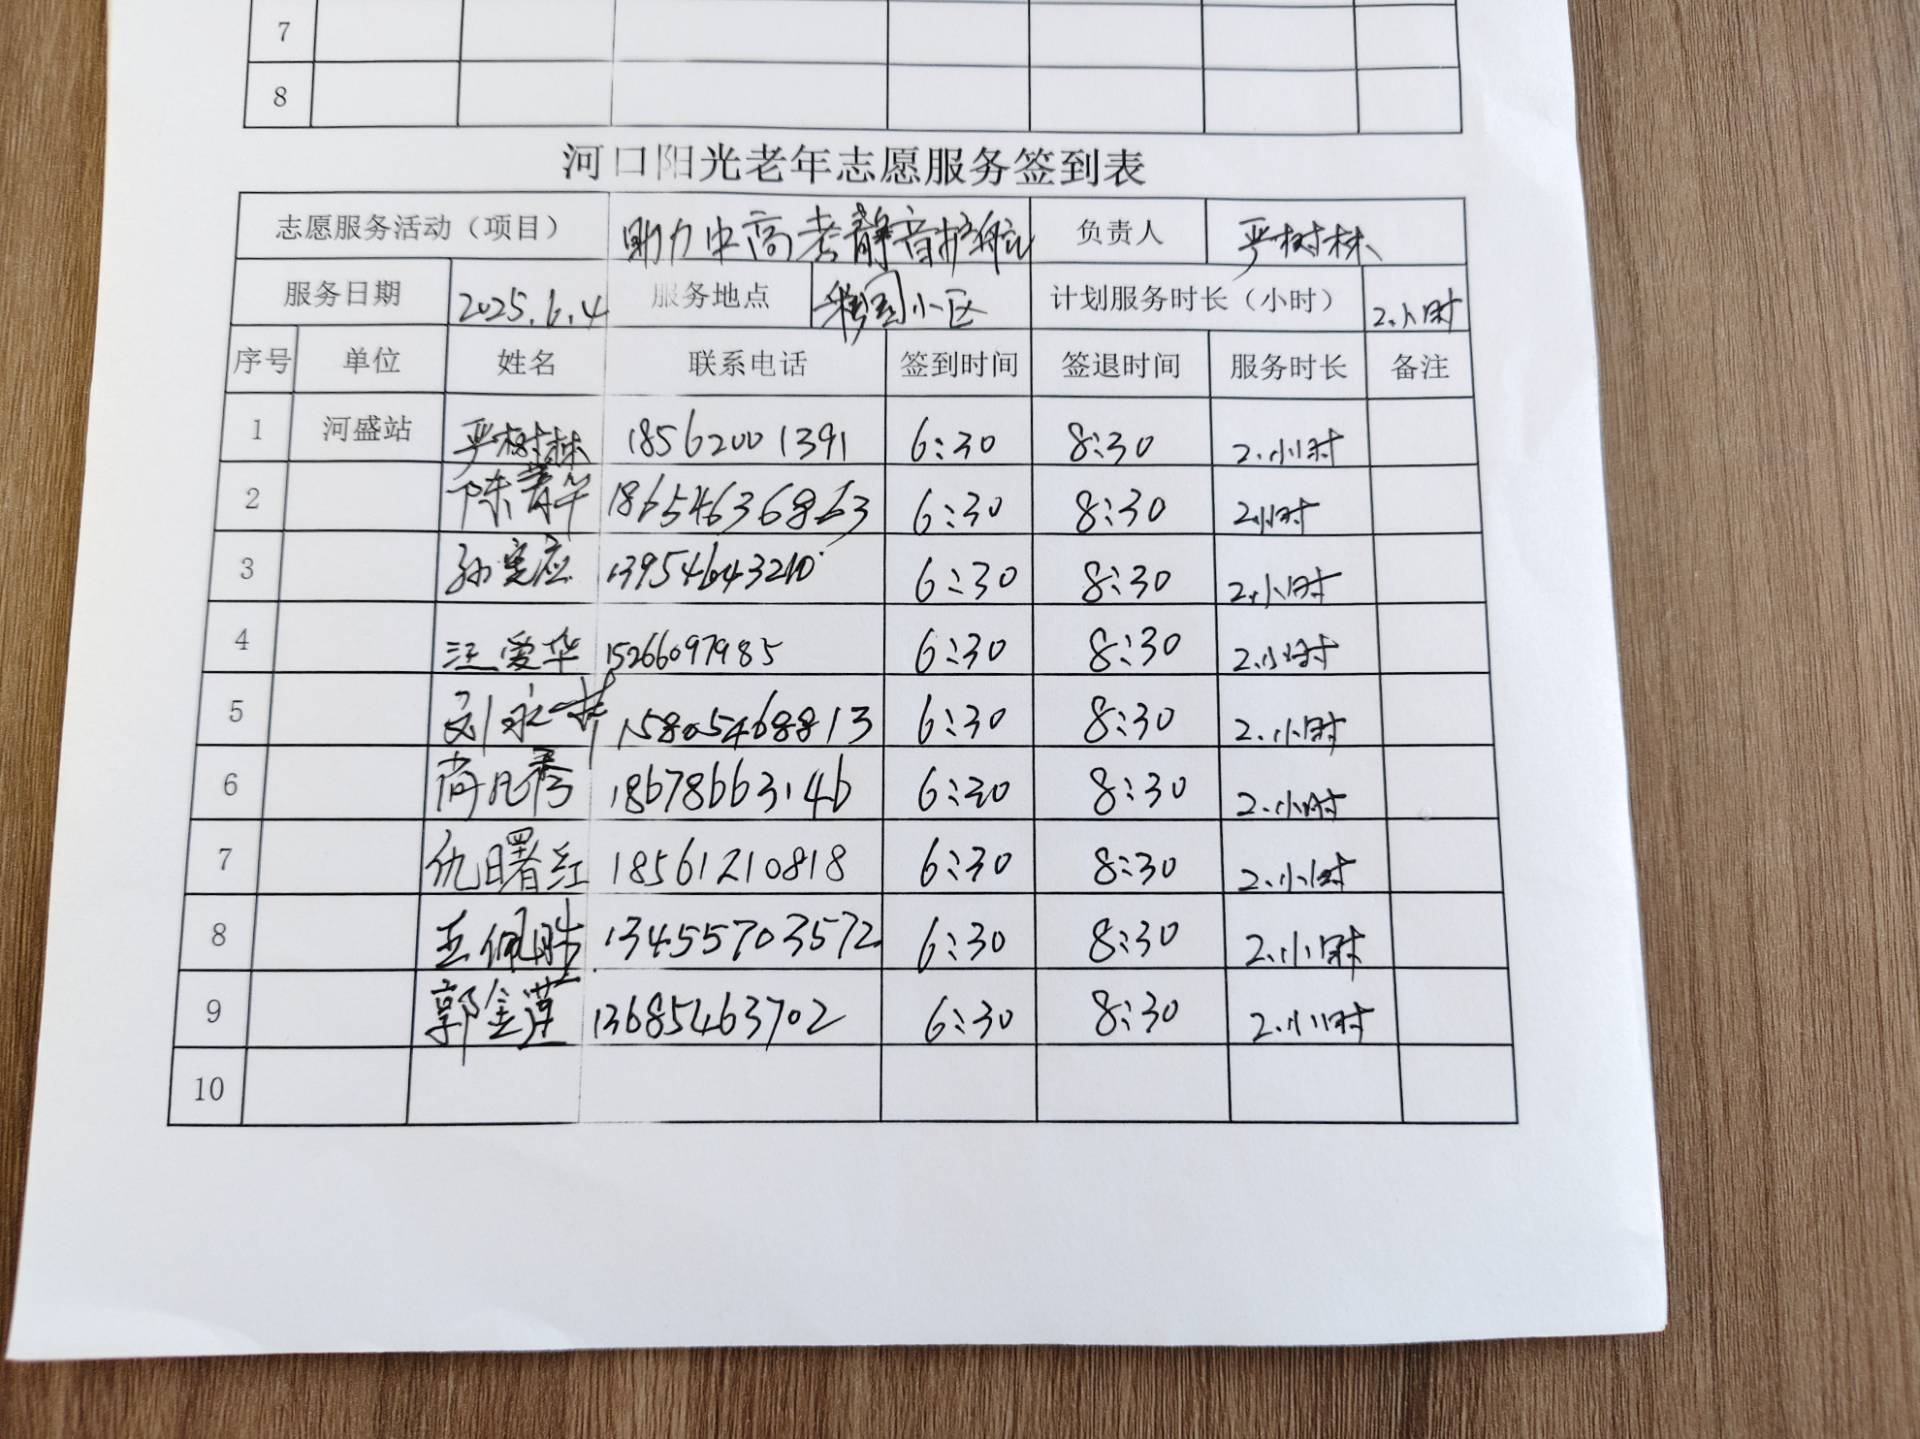 7
8
河口阳光老年志愿服务签到表
志愿服务活动（项目） 助力中高考静音护航 负责人 严树林
服务日期 2025.6.4 服务地点 小区 计划服务时长（小时） 2.小时
序号 单位 姓名 联系电话 签到时间 签退时间 服务时长 备注
1 河盛站 严树林 18562001391 6:30 8:30 2.小时
2 陈青华 18654636863 6:30 8:30 2小时
3 孙宪应 13954643210 6:30 8:30 2.小时
4 汪爱华 15266097985 6:30 8:30 2.小时
5 刘永 15805468813 6:30 8:30 2.小时
6 尚凡秀 18678663146 6:30 8:30 2.小时
7 仇曙红 18561210818 6:30 8:30 2.小时
8 王佩 13455703572 6:30 8:30 2.小时
9 郭金莲 13685463702 6:30 8:30 2.小时
10